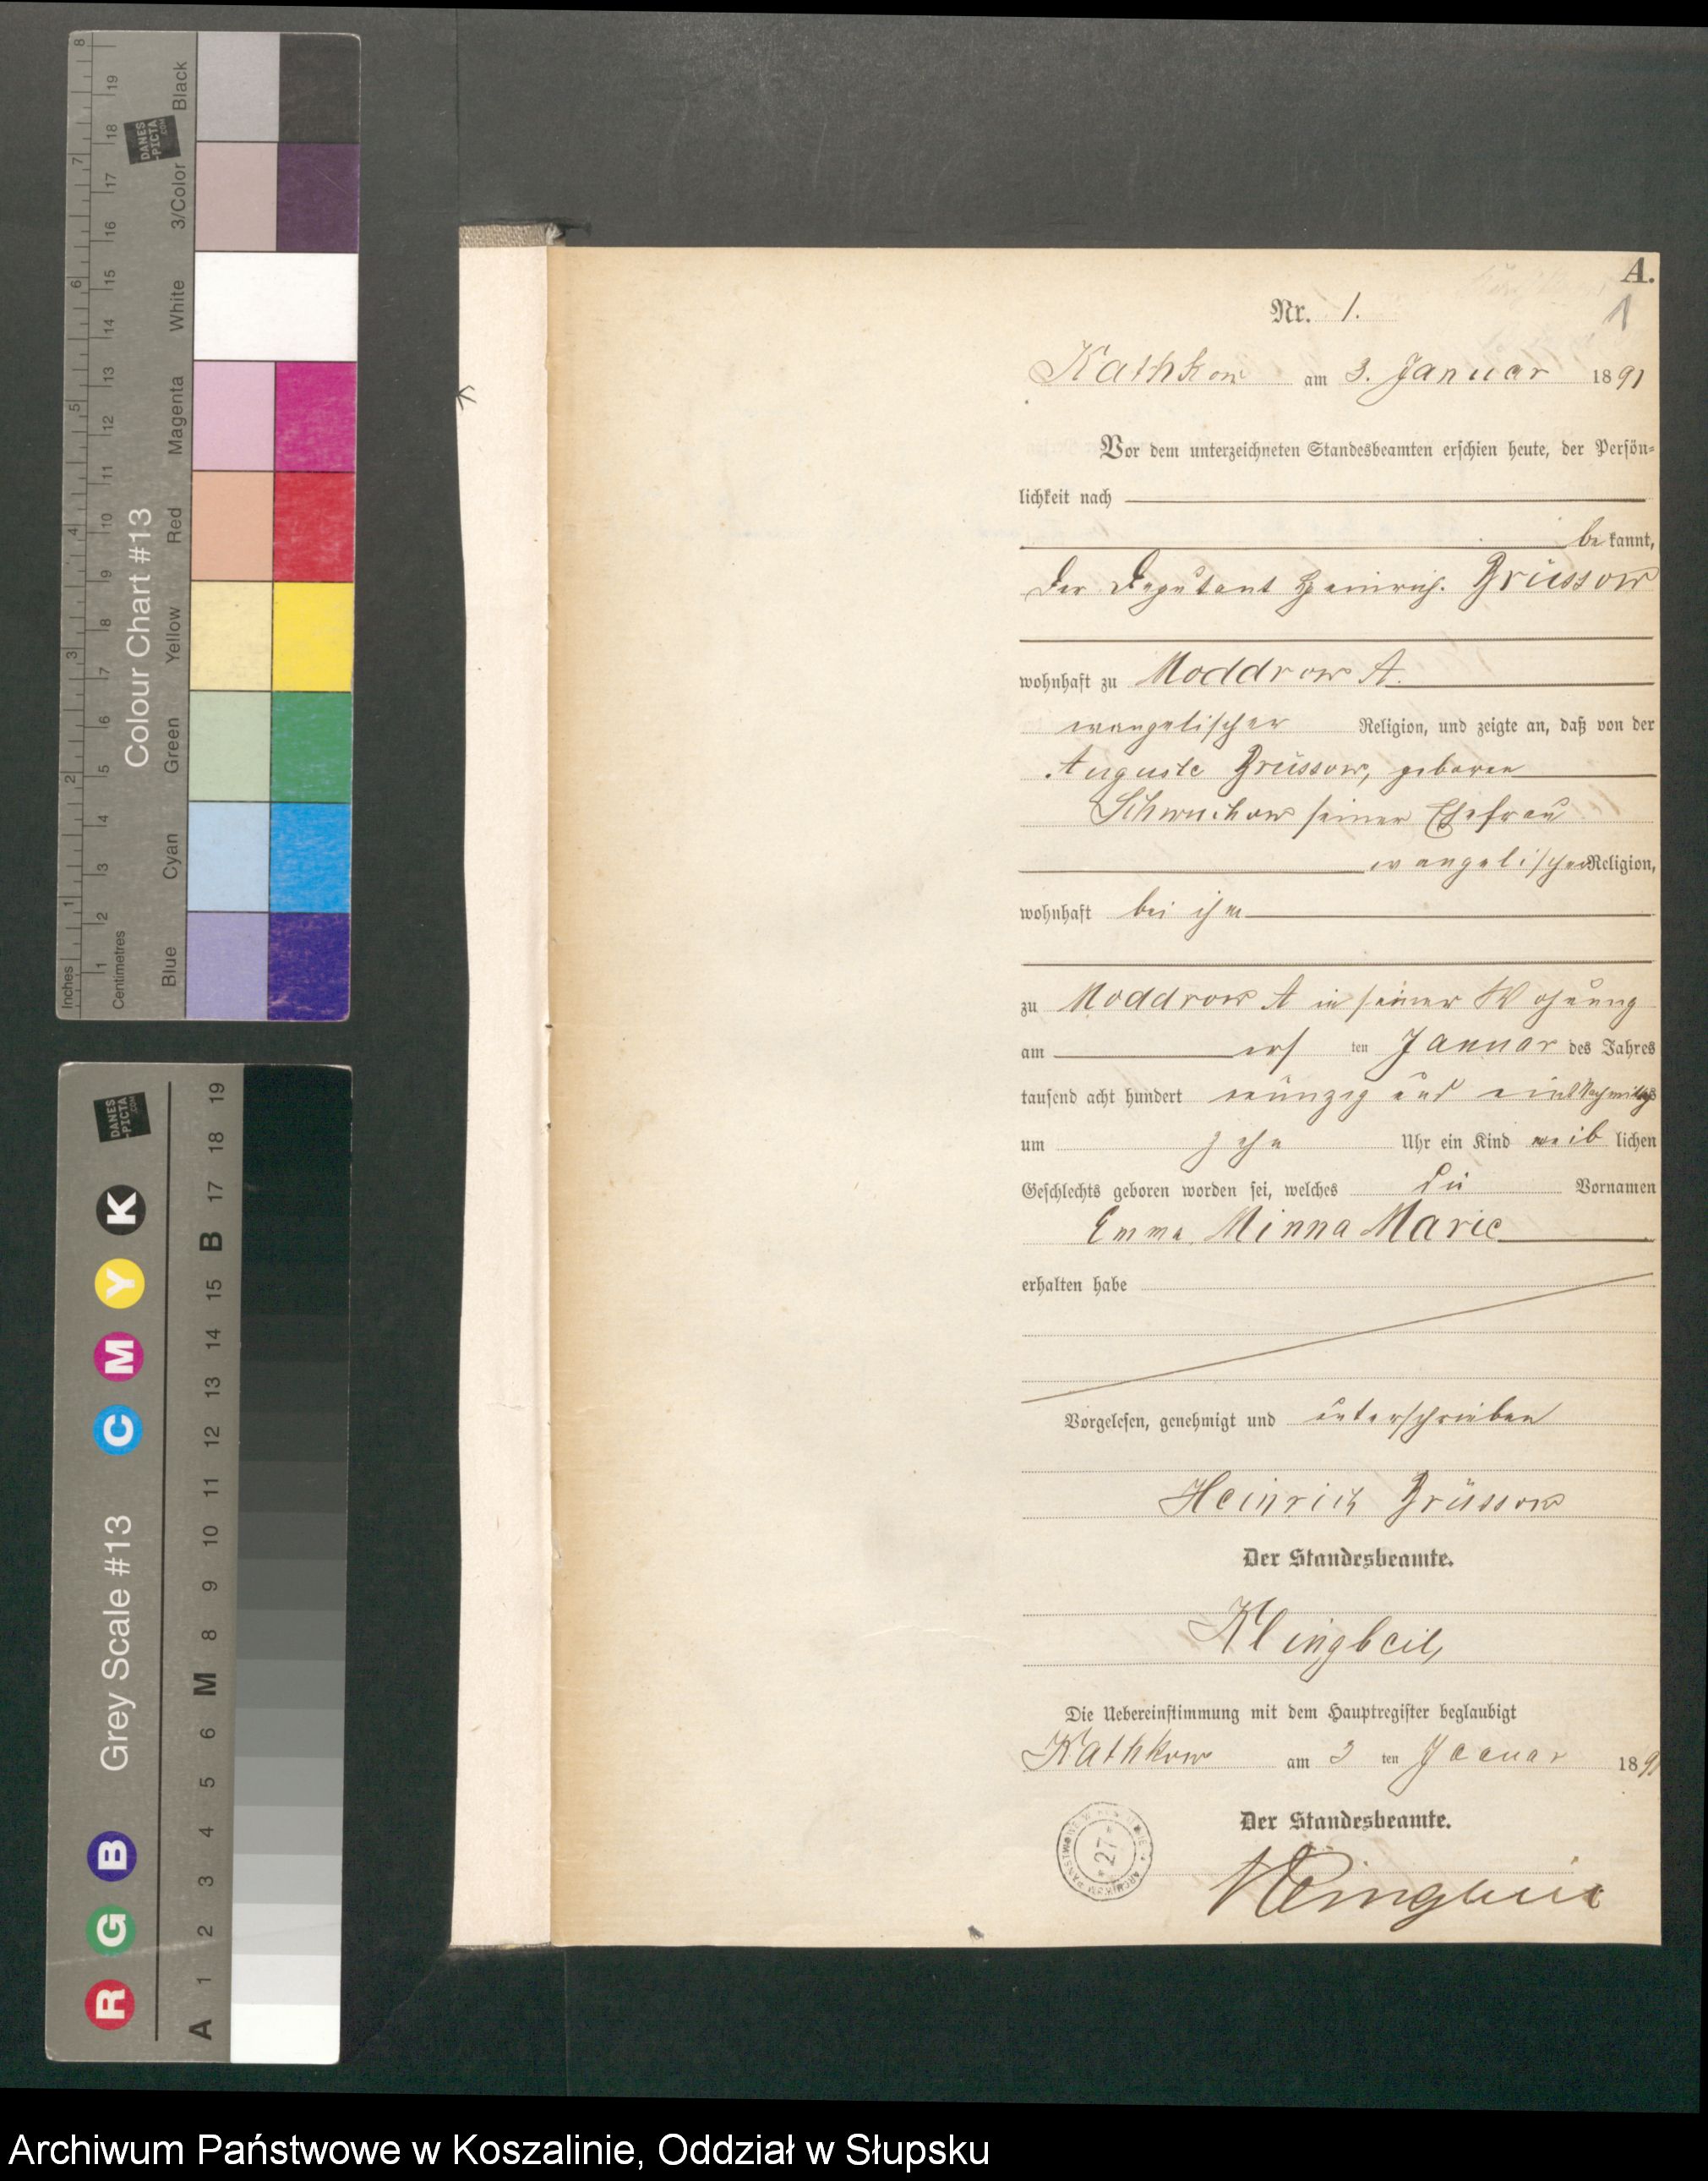 8
7
6
5
4
3
2
1
Inches
19
18
17
16
15
14
13
12
11
10
9
8
7
6
5
4
3
2
1
Centimetres
DANES
-PICTA
.COM
Colour Chart #13
Black
3/Color
White
Magenta
Red
Yellow
Green
Cyan
Blue
DANES
-PICTA
.COM
Grey Scale #13
R G B C M Y K
A 1 2 3 4 5 6 M 8 9 10 11 12 13 14 15 B 17 18 19
A.
1
Nr. 1.
Kathkow am 3. Januar 1891
Vor dem unterzeichneten Standesbeamten erschien heute, der Persön-
lichkeit nach
bekannt,
der Deputant Heinrich Brüssow
wohnhaft zu Moddrow A.
evangelischer Religion, und zeigte an, daß von der
Auguste Brüssow, geboren
Schwuchow seiner Ehefrau
evangelischer Religion,
wohnhaft bei ihm
zu Moddrow A in seiner Wohnung
am ten Januar des Jahres
tausend acht hundert neunzig und eins Nachmittags
um zehn Uhr ein Kind weiblichen
Geschlechts geboren worden sei, welches die Vornamen
Emma Minna Marie
erhalten habe
Vorgelesen, genehmigt und unterschrieben
Heinrich Brüssow
Der Standesbeamte.
Klingbeil,
Die Uebereinstimmung mit dem Hauptregister beglaubigt
Kathkow am 3 ten Januar 1891
Der Standesbeamte.
Klingbeil
*27*
Archiwum Państwowe w Koszalinie, Oddział w Słupsku